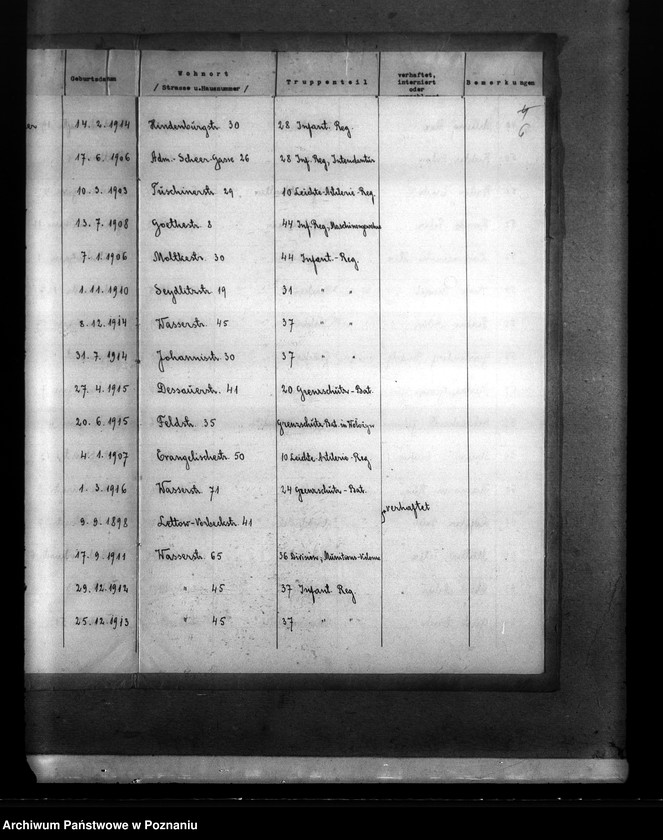 Geburtsdatum Wohnort Truppenteil verhaftet, Bemerkungen
/ Strasse u.Hausnummer / interniert
oder
4
6
14. 2. 1914 Hindenburgstr. 30 28 Infant. Reg.
17. 6. 1906 Adm.-Scheer-Gasse 26 28 Inf. Reg, Intendantur
10. 3. 1903 Tuschinerstr. 29 10 Leichte-Artilerie-Reg.
13. 7. 1908 Goethestr. 8 44 Inf. Reg.
7. 1. 1906 Moltkestr. 30 44 Infant.-Reg.
1. 11. 1910 Seydlitzstr. 19 31 " "
8. 12. 1914 Wasserstr. 45 37 " "
31. 7. 1914 Johannisstr. 30 37 " "
27. 4. 1915 Dessauerstr. 41 20 Grenzschütz-Bat.
20. 6. 1915 Feldstr. 35 Grenzschütz Bat. in
4. 1. 1907 Evangelischestr. 50 10 Leichte-Artilerie-Reg.
1. 3. 1916 Wasserstr. 71 24 Grenzschütz-Bat.
9. 9. 1898 Lettow-Vorbeckstr. 41 verhaftet
17. 9. 1911 Wasserstr. 65 36 Division, Munitions-Kolonne
29. 12. 1912 " 45 37 Infant. Reg.
25. 12. 1913 " 45 37 " "
Archiwum Państwowe w Poznaniu